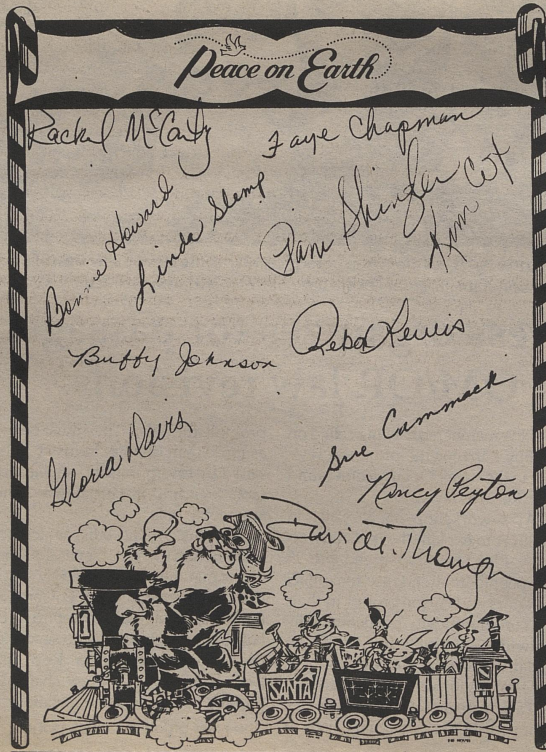 Peace on Earth
Rachel McCarty
Faye Chapman
Bonnie Howard
Linda Slemp
Pam Shingler
Kim Cox
Buffy Johnson
Reba Lewis
Gloria Davis
Sue Cammack
Nancy Peyton
David
SANTA